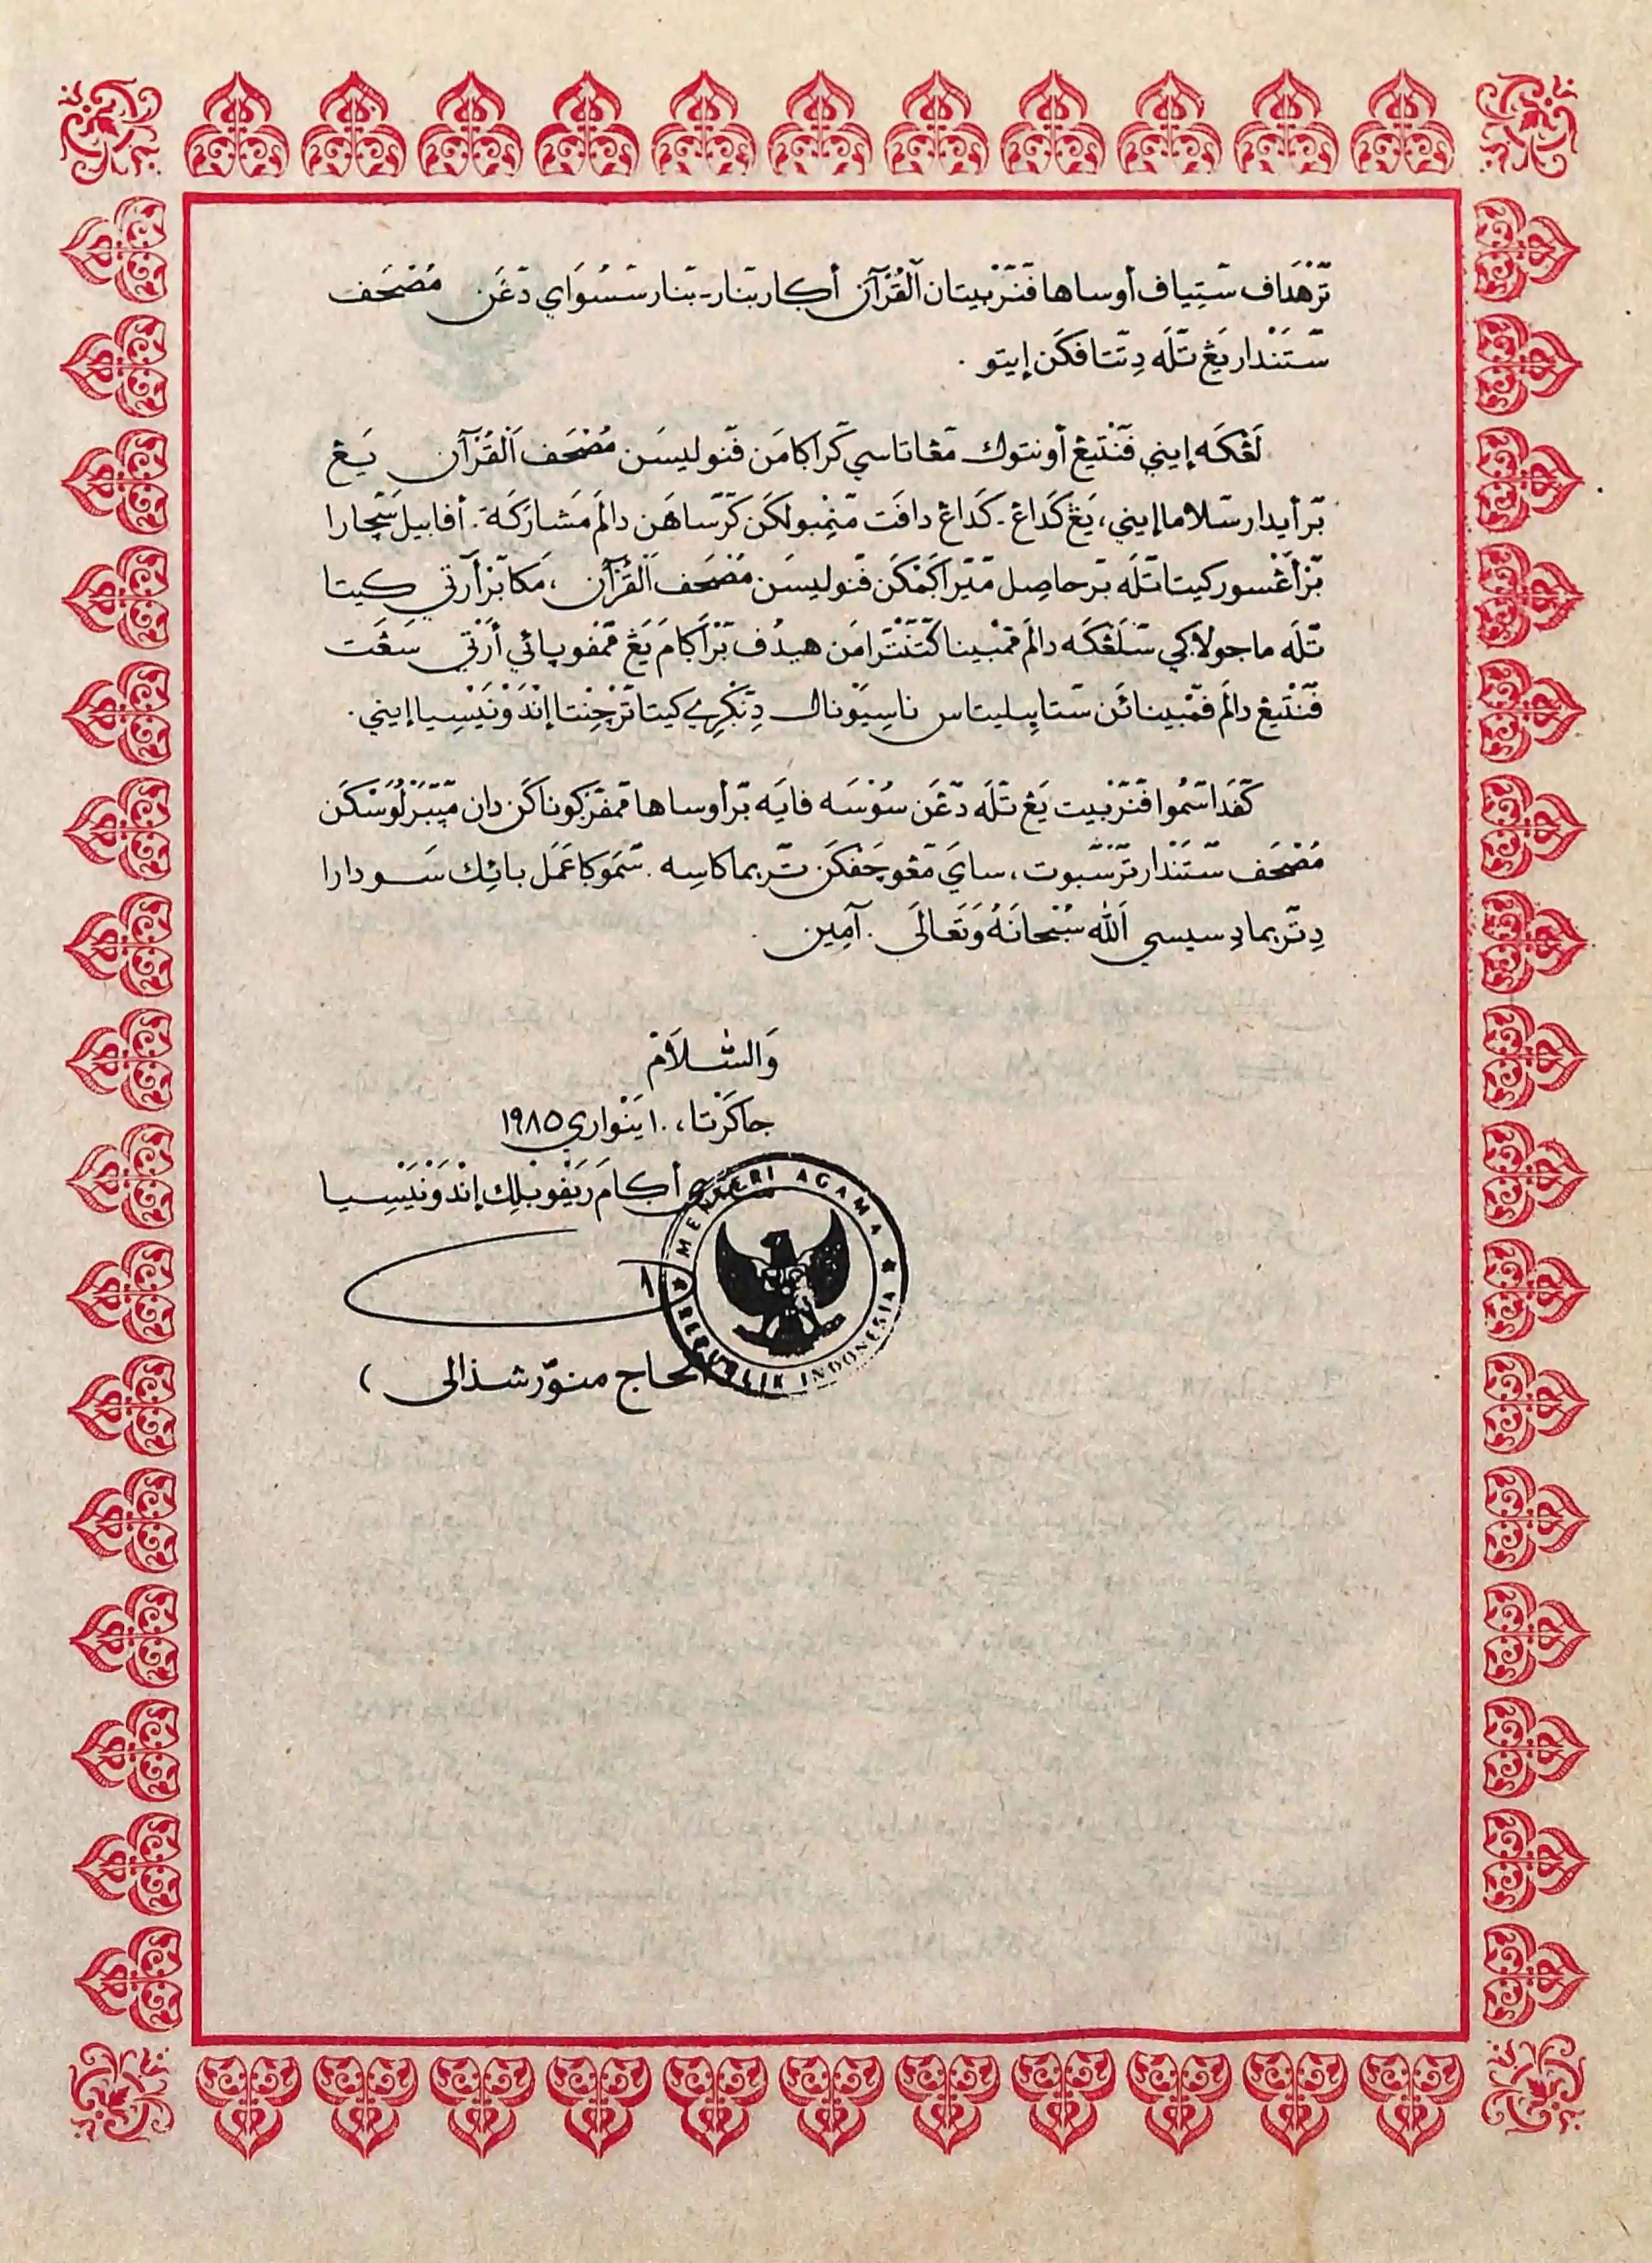 تٓرْهَداف سٓتِياف أوساها فٓنٓرْبيتان اَلْقُرْآن أݢار بٓنار-بٓنار سٓسُوَاي دٓڠَن مُصْحَف
سٓتَنْدار يَڠ تٓلَه دِتٓتافكَن إيتو .
لَڠْكَه إيني فٓنْتيڠ أونتوك مٓڠاتاسي كٓراݢامَن فٓنوليسَن مُصْحَف اَلْقُرْآن يَڠ
بٓرأيدار سٓلاما إيني، يَڠ كَداڠ-كَداڠ دافَت مٓنِمْبولكَن كٓرٓساهَن دالَم مَشارَكَة. أفابيل سٓچارا
بٓرْأَڠْسور كيتا تٓلَه بٓرحاصِل مٓيٓراݢَمْكَن فٓنوليسَن مُصْحَف اَلْقُرْآن ، مَكا بٓرْأَرْتي كيتا
تٓلَه ماجو لاݢي سٓلَڠْكَه دالَم مٓمْبينا كٓتٓنْتٓرامَن هيدُف بٓرْاَݢامَ يَڠ مٓمْفوپائي أَرْتي سَڠَت
فٓنْتيڠ دالَم فٓمْبينائَن سٓتابِيليتاس ناسِيَوْنال دِنٓݢْرِي كيتا تٓرْچِنْتا إنْدَوْنَيْسِيا إيني.
كٓفَدا سٓمُوا فٓنٓرْبيت يَڠ تٓلَه دٓڠَن سُوْسَه فايَه بٓرأوساها مٓمْفٓرْݢوناكَن دان مٓپٓبَرْلُوَسْكَن
مُصْحَف سٓتَنْدار تٓرْسٓبوت، سايَ مٓڠوچَفْكَن تٓريما كاسِه. سٓمَوݢا عَمَل بائِك سَودارا
دِتٓريما دِ سيسي اَللّٰه سُبْحانَهُ وَتَعَالَى . آمِين .
وَالسَّلاَمْ
جاكَرْتا، ١٠ يَنْواري ١٩٨٥
أݢامَ رَيْفوبْلِك إنْدَوْنَيْسِيا
MENTERI AGAMA
REPUBLIK INDONESIA
الحاج منوّر شذالى )